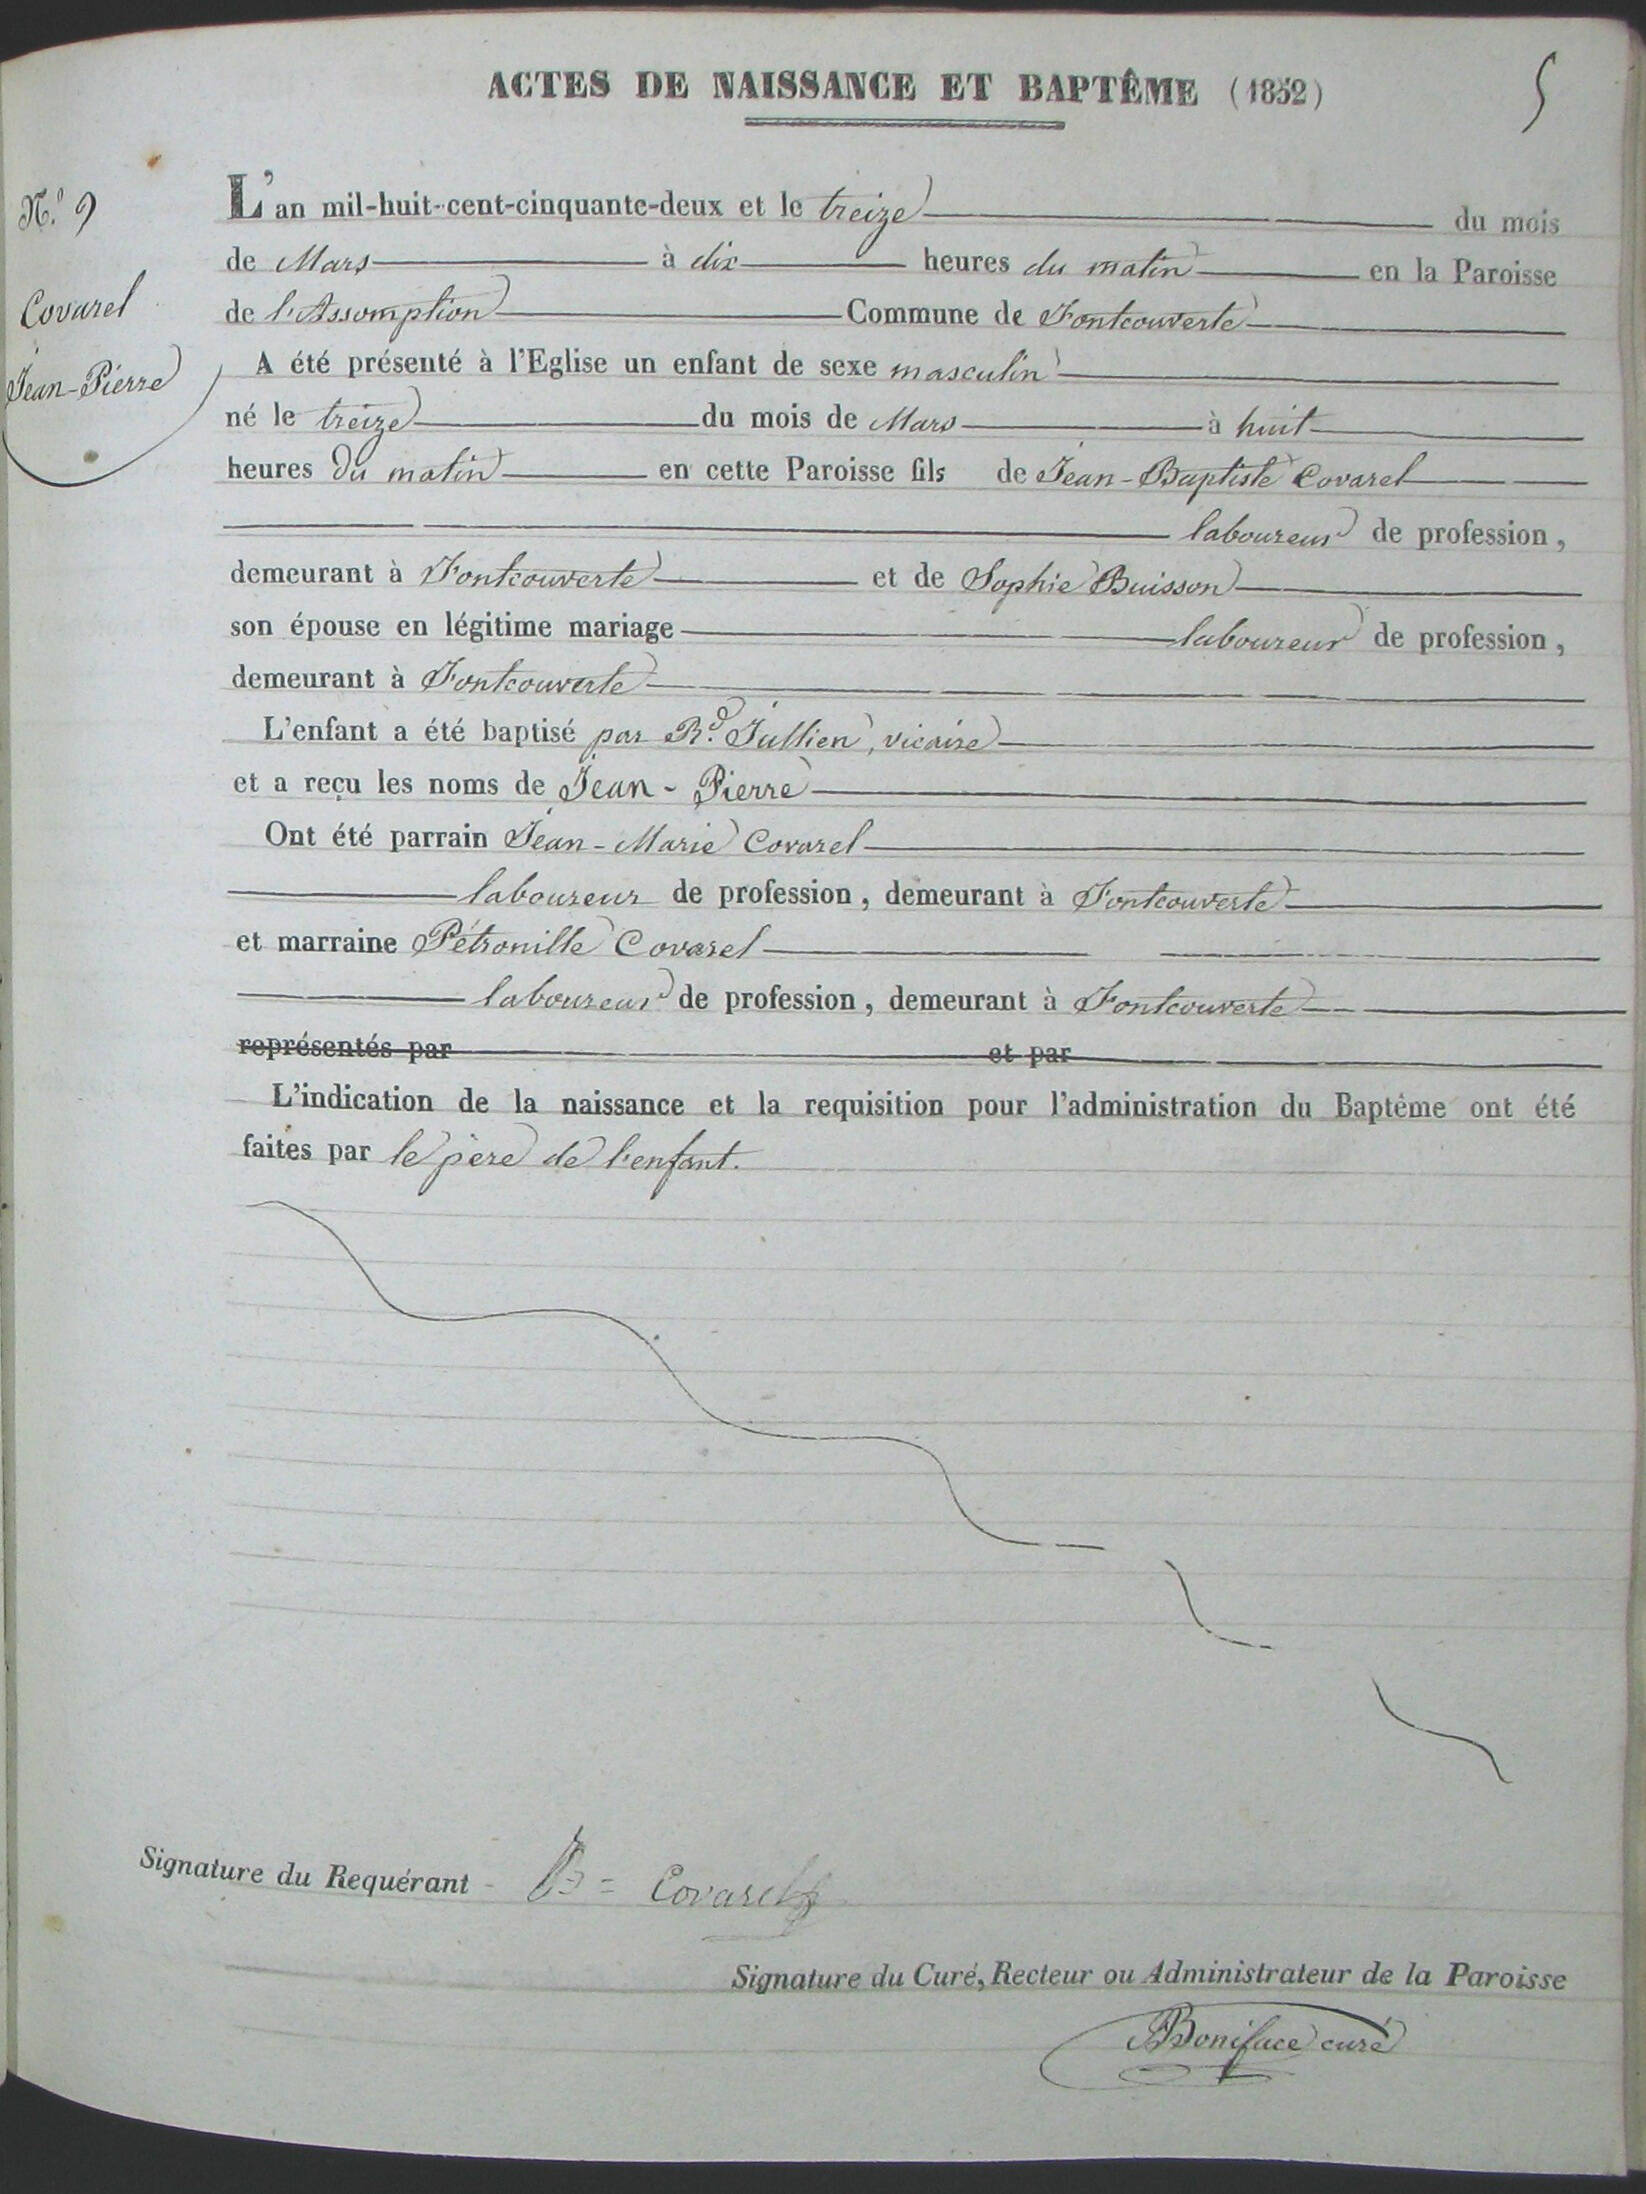 ACTES DE NAISSANCE ET BAPTÊME (1852)
5
N.º 9
Covarel
Jean-Pierre
L'an mil-huit-cent-cinquante-deux et le treize du mois
de Mars à dix heures du matin en la Paroisse
de l'Assomption Commune de Fontcouverte
A été présenté à l'Eglise un enfant de sexe masculin
né le treize du mois de Mars à huit
heures du matin en cette Paroisse fils de Jean-Baptiste Covarel
laboureur de profession,
demeurant à Fontcouverte et de Sophie Buisson
son épouse en légitime mariage laboureur de profession,
demeurant à Fontcouverte
L'enfant a été baptisé par R.d Jullien, vicaire
et a reçu les noms de Jean-Pierre
Ont été parrain Jean-Marie Covarel
laboureur de profession, demeurant à Fontcouverte
et marraine Pétronille Covarel
laboureur de profession, demeurant à Fontcouverte
représentés par et par
L'indication de la naissance et la requisition pour l'administration du Baptême ont été
faites par le père de l'enfant.
Signature du Requérant - B = Covarel
Signature du Curé, Recteur ou Administrateur de la Paroisse
Boniface curé